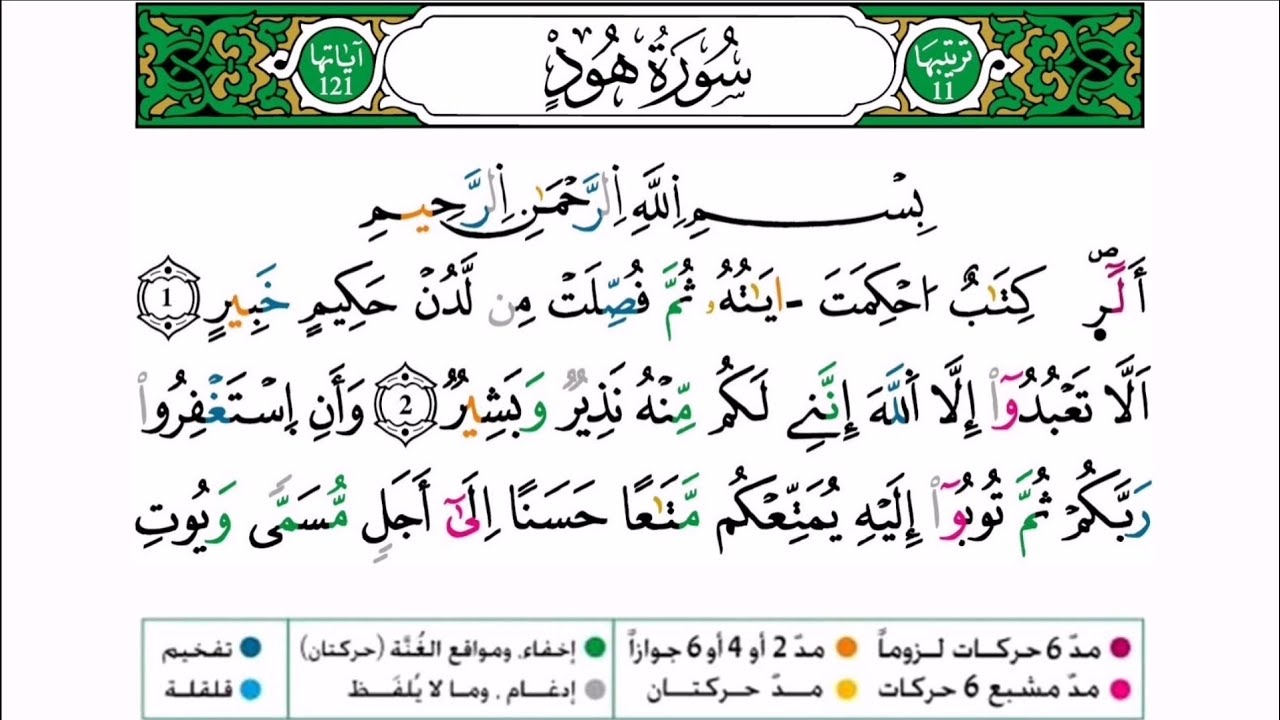 ترتيبها 11 سُورَةُ هُودٍ آياتها 121
بِسْمِ اِ۬للَّهِ اِ۬لرَّحْمَٰنِ اِ۬لرَّحِيمِ
أَلَٓرۖ كِتَٰبٌ ا۟حْكِمَتَ ـ اَيَٰتُهُۥ ثُمَّ فُصِّلَتْ مِن لَّدُنْ حَكِيمٍ خَبِيرٍ 1
اَلَّا تَعْبُدُوٓاْ إِلَّا اَ۬للَّهَ إِنَّنِے لَكُم مِّنْهُ نَذِيرٌ وَبَشِيرٌ 2 وَأَنِ اِ۪سْتَغْفِرُواْ
رَبَّكُمْ ثُمَّ تُوبُوٓاْ إِلَيْهِ يُمَتِّعْكُم مَّتَٰعًا حَسَنًا اِلَىٰٓ أَجَلٖ مُّسَمّٗى وَيُوتِ
مدّ 6 حركات لـزوماً مدّ 2 أو 4 أو 6 جوازاً إخفاء، ومواقع الغُنَّة (حركتان) تفخيم
مدّ مشبع 6 حركات مـدّ حـركتـان إدغام ، وما لا يُلفَـظ قلقلة